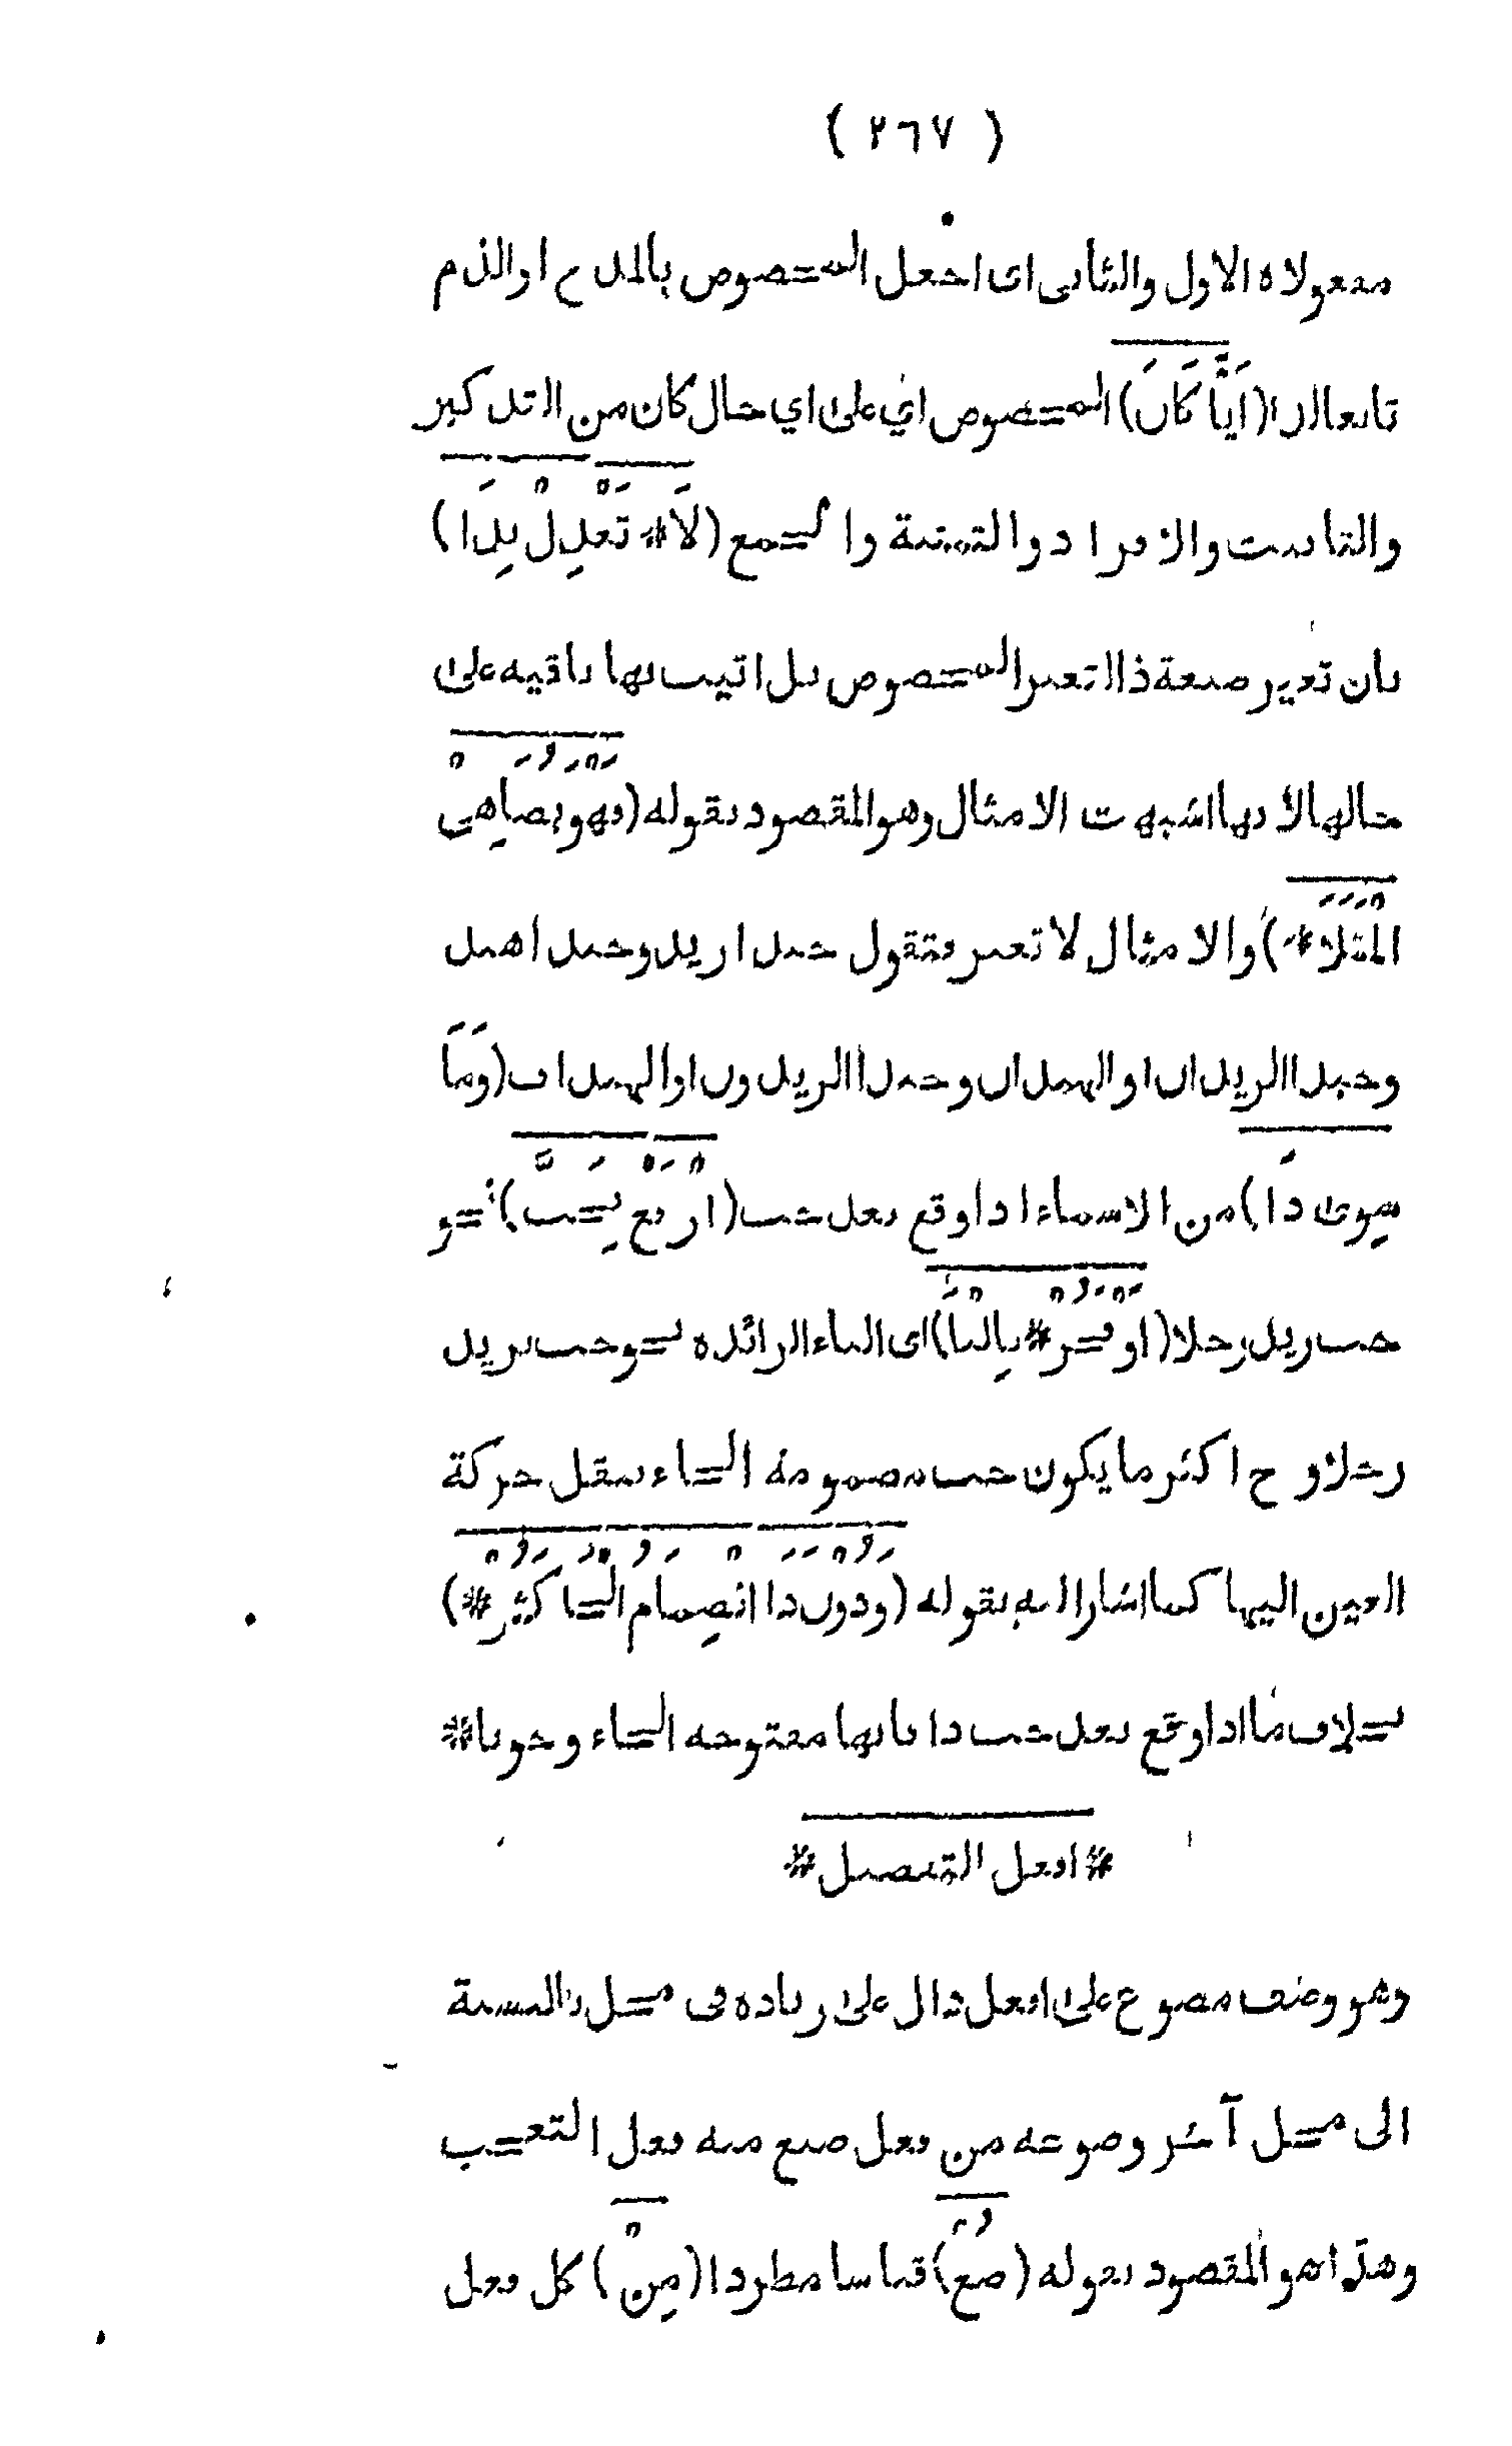 ( ٢٦٧ )
مفعولاه الاول والثانى اى اجعل المخصوص بالمدح او الذم
تابعا لذا (اَيًّا كَانَ) المخصوص اي على اي حال كان من التذكير
والتانيث والافراد والتثنية والجمع (لَا * تَعْدِلْ بِذَا)
بان تغير صيغة ذا لتغير المخصوص بل ائت بها باقيه على
حالها لانها اشبهت الامثال وهو المقصود بقوله (فَهْوَ يُضَاهِي
الْمَثَلَا *) والامثال لا تغير فتقول حبذا زيد وحبذا هند
وحبذا الزيدان او الهندان وحبذا الزيدون او الهندات (وَمَا
سِوَى ذَا) من الاسماء اذا وقع بعد حب (ارْفَعْ بِحَبَّ) نحو
حب زيد رجلا (اَوْ فَجُرْ * بِالْبَا) اى الباء الزائده نحو حب بزيد
رجلا و ح اكثر ما يكون حب مضمومة الحاء بنقل حركة
العين اليها كما اشار اليه بقوله (وَدُونَ ذَا انْضِمَامُ الْحَا كَثُرْ *)
بخلاف ما اذا وقع بعد حب ذا فانها مفتوحه الحاء وجوبا *
* افعل التفضيل *
وهو وصف مصوغ على افعل دال على زياده فى محل بالنسبة
الى محل آخر وصوغه من فعل صيغ منه فعل التعجب
وهذا هو المقصود بقوله (صُغْ) قياسا مطردا (مِنْ) كل فعل